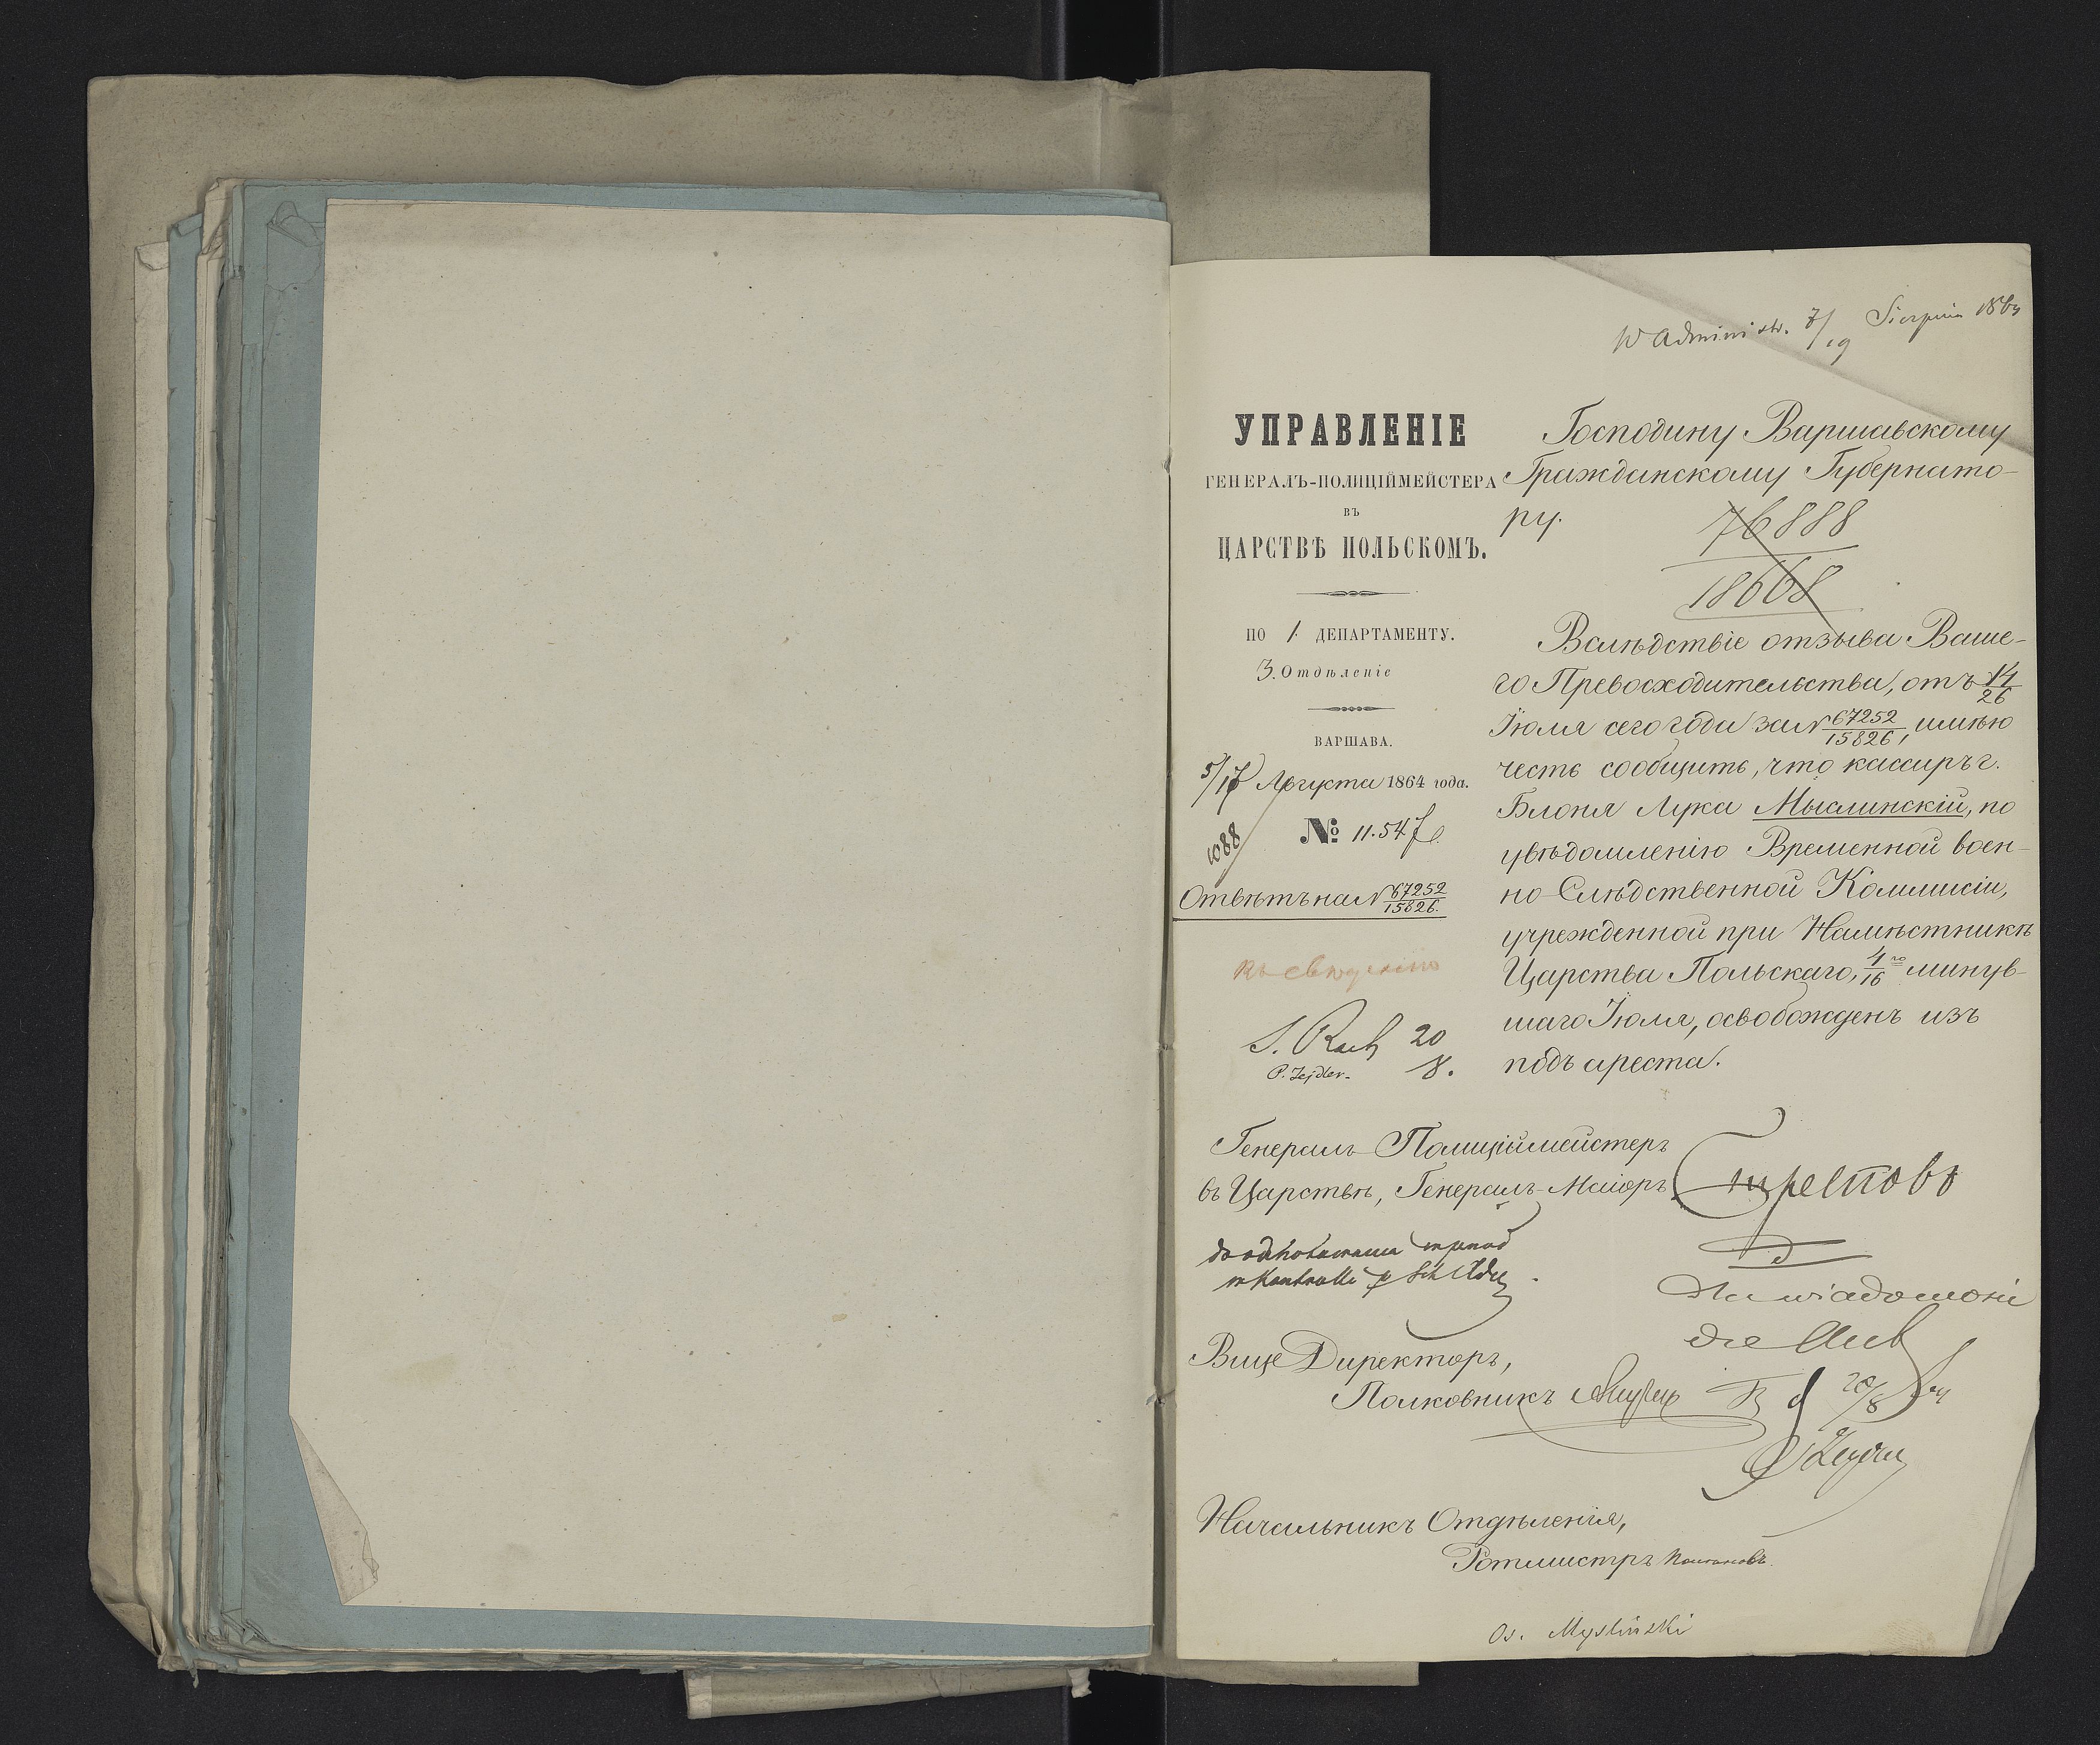 W Administr. 7/19 Sierpnia 1864
УПРАВЛЕНІЕ
ГЕНЕРАЛЪ-ПОЛИЦІЙМЕЙСТЕРА
ВЪ
ЦАРСТВѢ ПОЛЬСКОМЪ.
ПО 1. ДЕПАРТАМЕНТУ.
3. Отдѣленіе
ВАРШАВА.
5/17 Августа 1864 года.
№ 11.547
1088
Отвѣтъ на № 67252/15826.
къ свѣдѣнію
S. Rach 20
P. Zejdler. 8.
Господину Варшавскому
Гражданскому Губернато-
ру.
76888
18668
Вслѣдствіе отзыва Ваше-
го Превосходительства, отъ 14/26
Іюля сего года за № 67252/15826, имѣю
честь сообщить, что кассиръ г.
Блоня Лука Мыслинскій, по
увѣдомленію Временной воен-
но-Слѣдственной Коммисіи,
учрежденной при Намѣстникѣ
Царства Польскаго, 4/16го минув-
шаго Іюля, освобожденъ изъ
подъ ареста.
Генералъ-Полиціймейстеръ
въ Царствѣ, Генералъ-Маіоръ Треповъ
Do wiadomości
Вице Директоръ,
Полковникъ
20/8
Начальникъ Отдѣленія,
Ротмистръ
Os. Mysliński